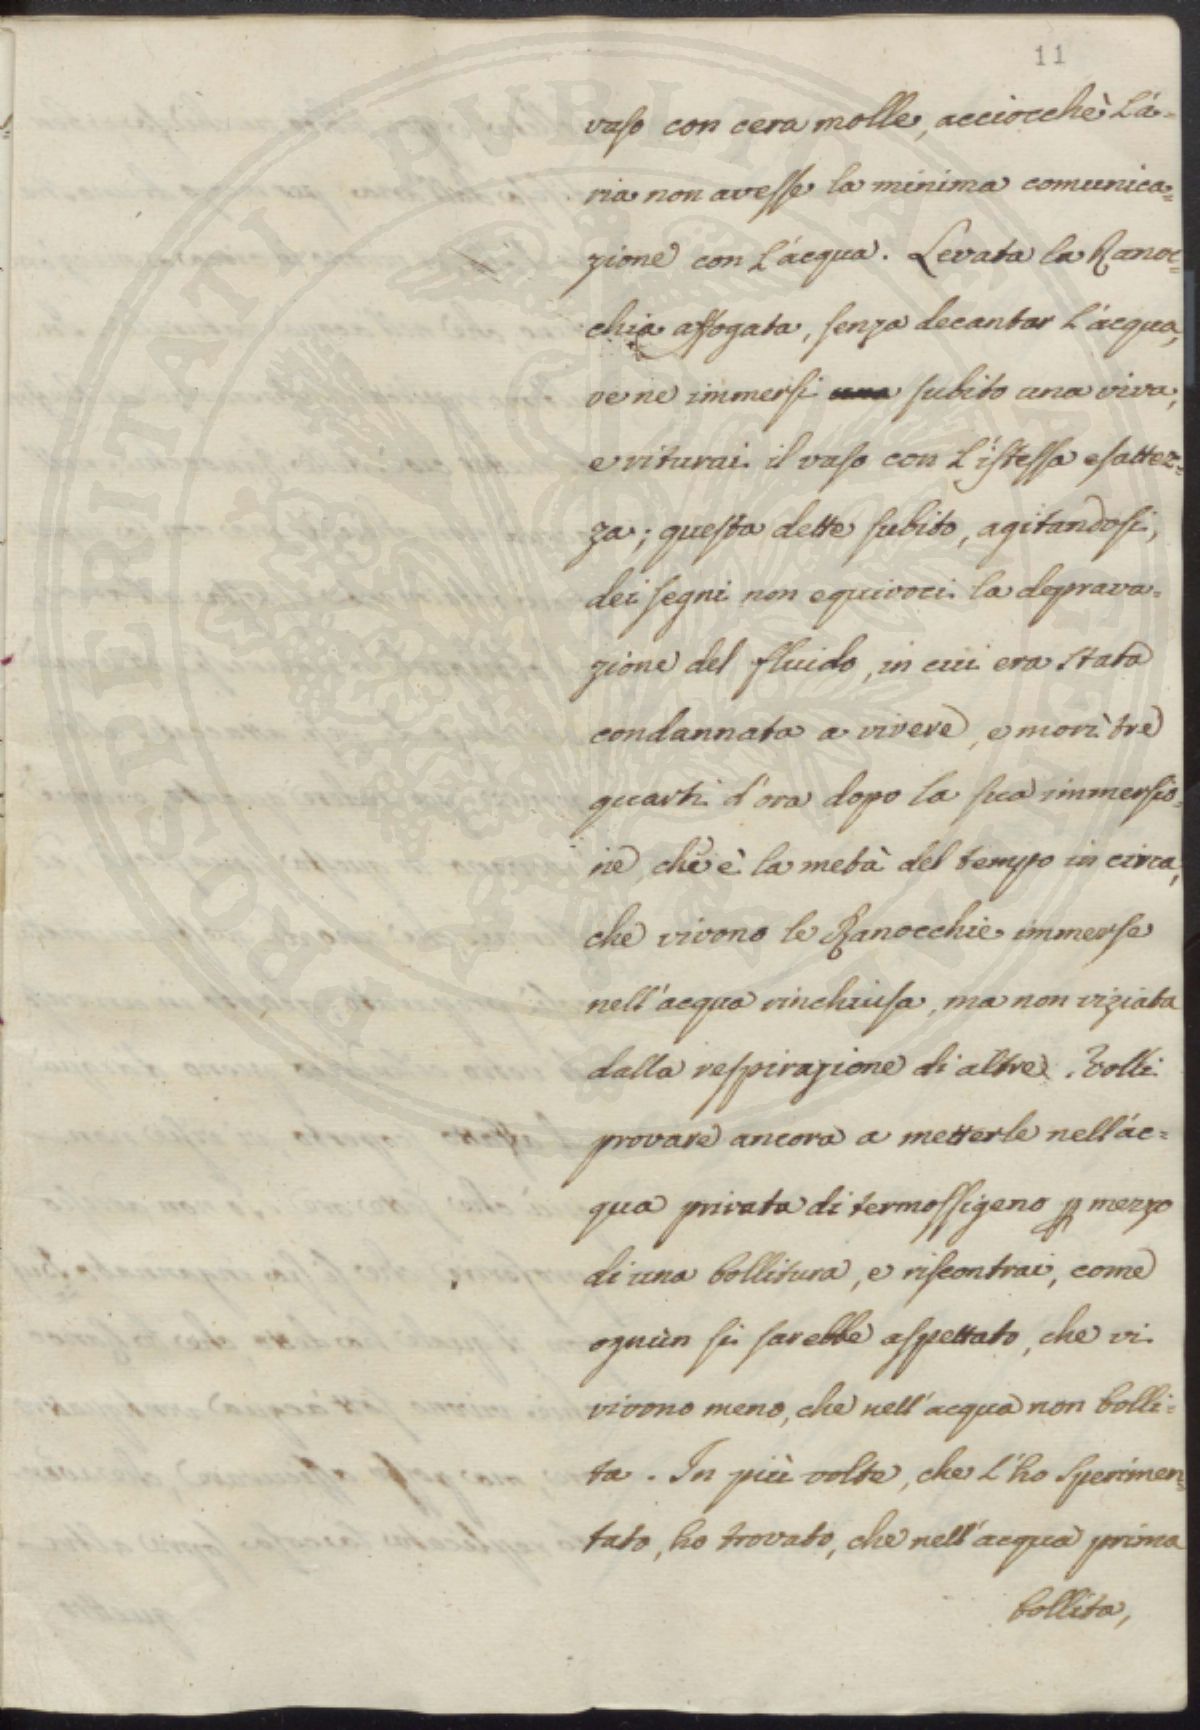 11
vaso con cera molle, acciocchè L'a=
ria non avesse la minima comunica=
zione con L'acqua. Levata la Ranoc=
chia affogata, senza decantar L'acqua,
ve ne immersi una subito una viva,
e riturai il vaso con L'istessa esattez=
za; questa dette subito, agitandosi,
dei segni non equivoci la deprava=
zione del fluido, in cui era stata
condannata a vivere, e morì tre
quarti d'ora dopo la sua immersio=
ne, che è la metà del tempo in circa,
che vivono le Ranocchie immerse
nell'acqua rinchiusa, ma non viziata
dalla respirazione di altre. Volli
provare ancora a metterle nell'ac=
qua privata di termossigeno p mezzo
di una bollitura, e riscontrai, come
ognùn si sarebbe aspettato, che vi
vivono meno, che nell'acqua non bolli=
ta. In più volte, che L'ho sperimen=
tato, ho trovato, che nell'acqua prima
bollita,
PROSPERITATI PUBLICAE AUGENDAE